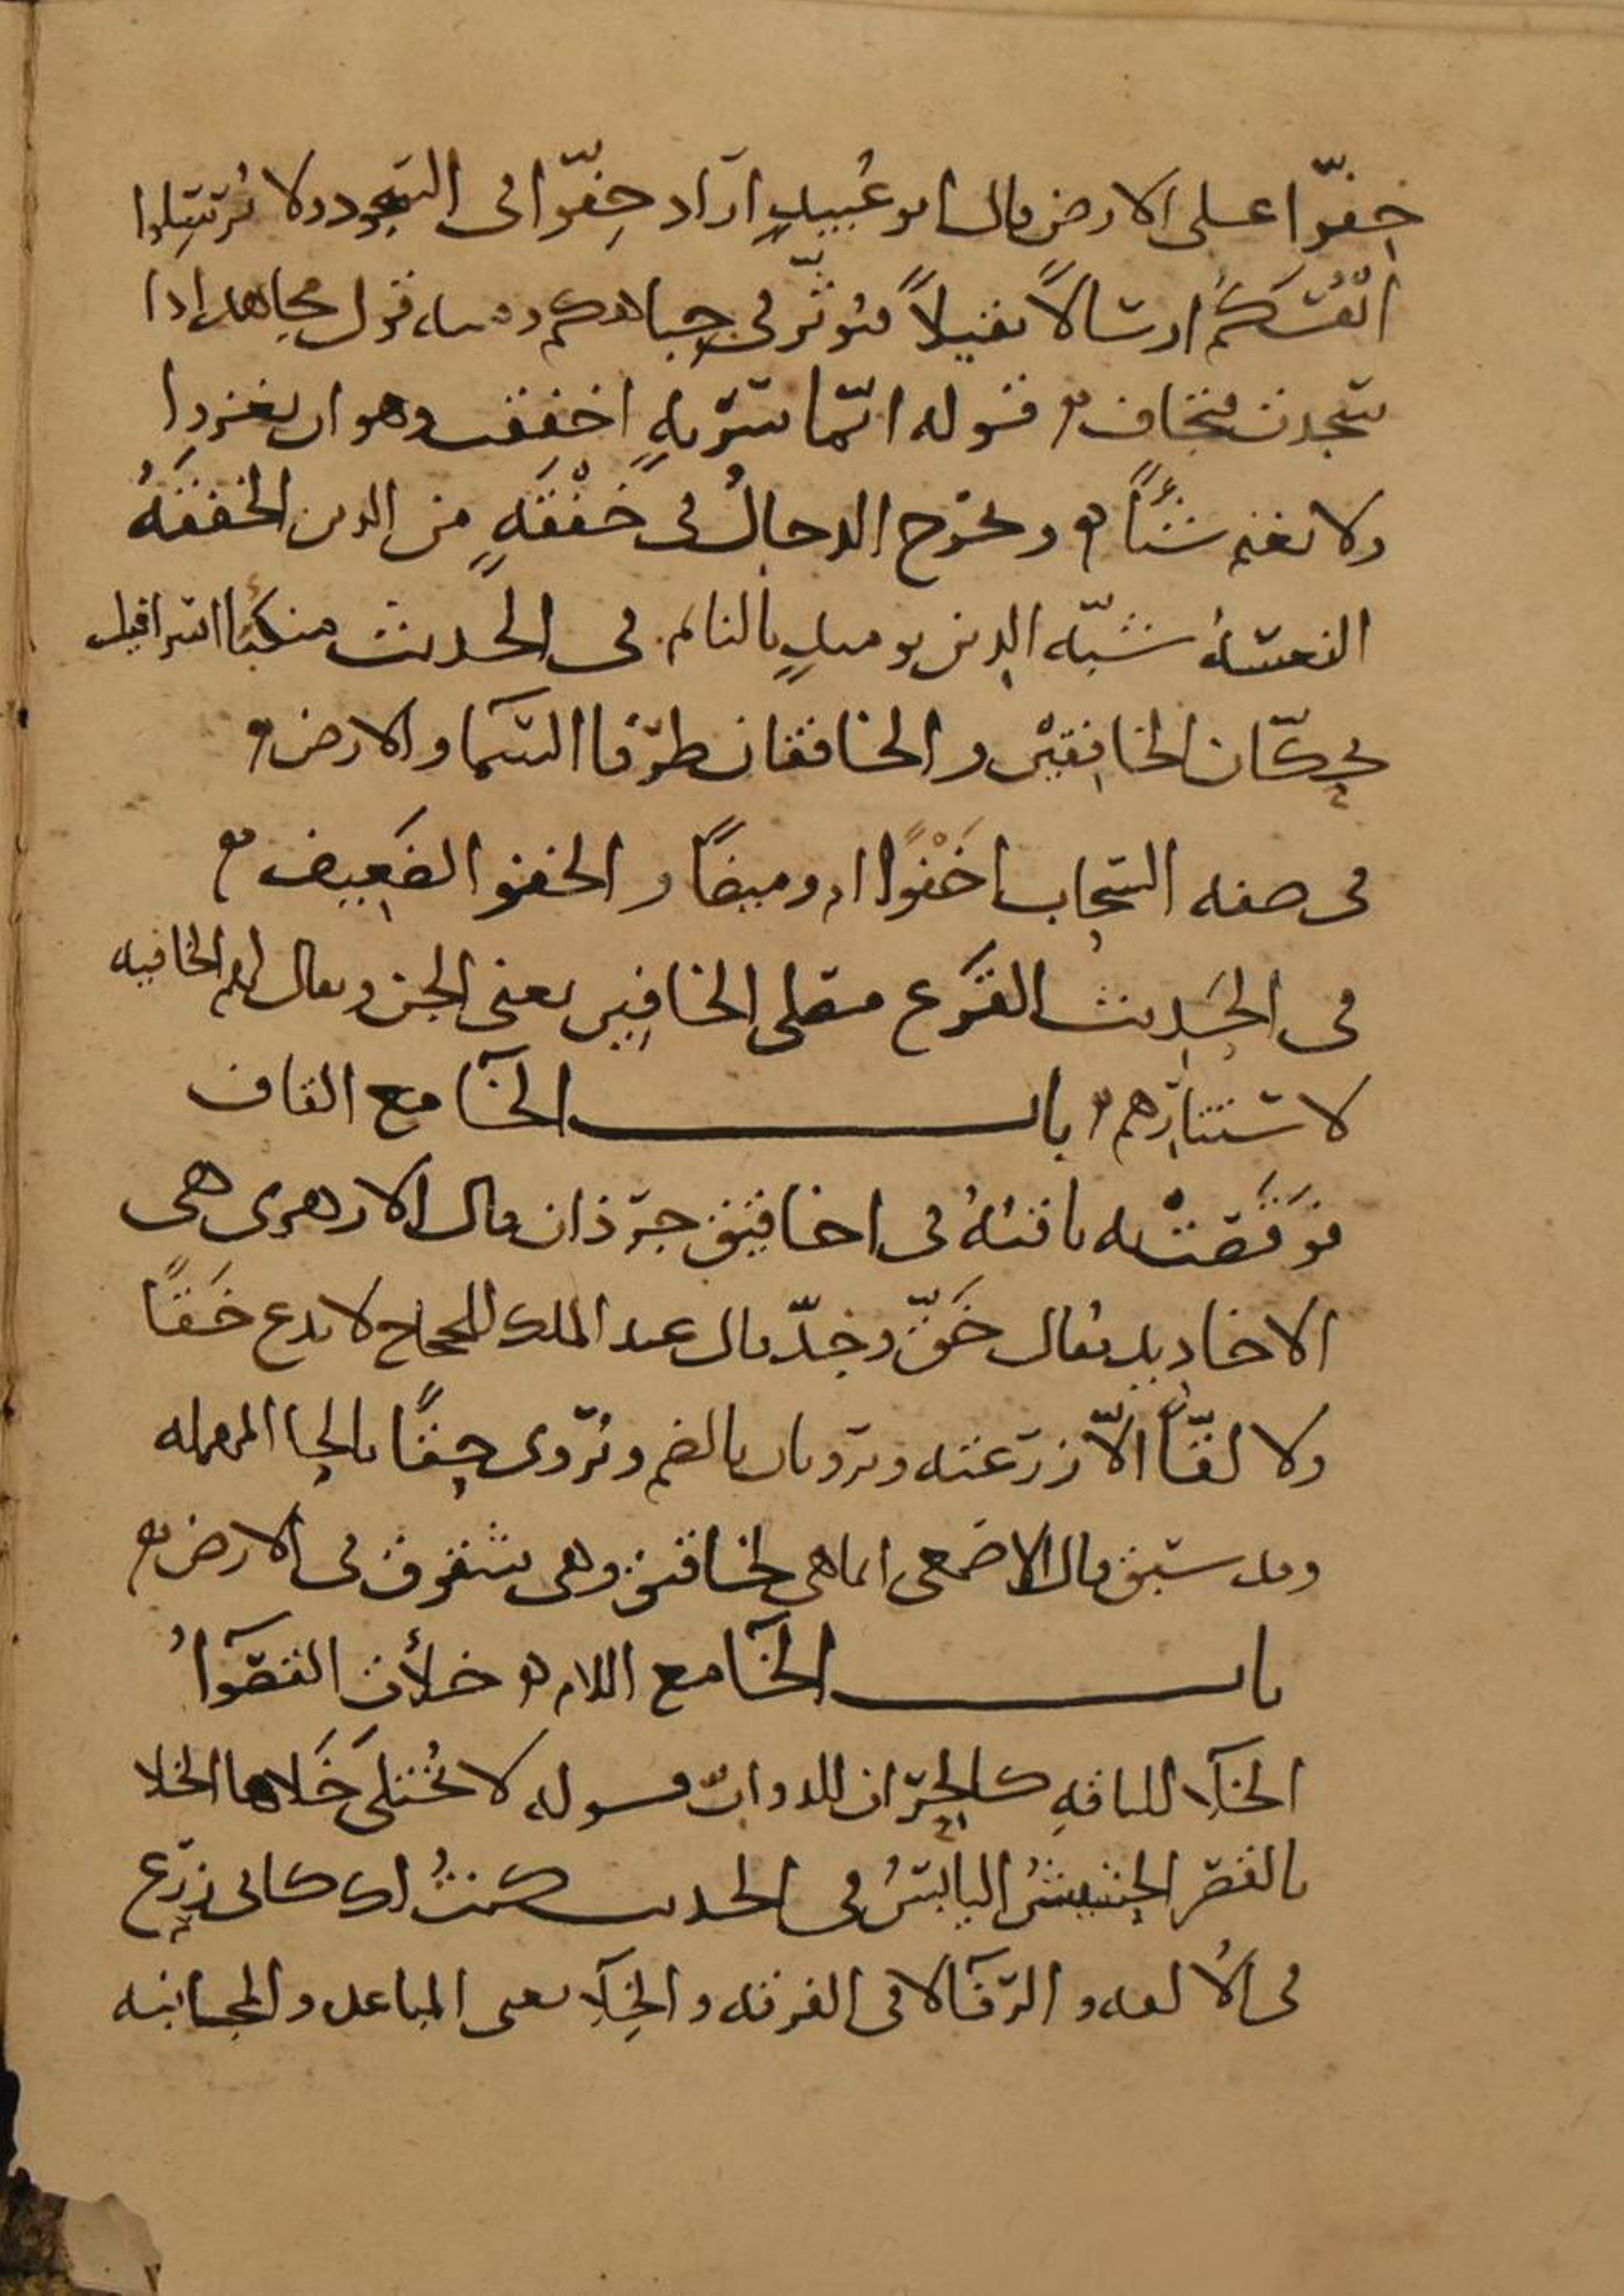 خفّوا على الارض قال ابو عُبيدٍ اراد خِفّوا فى السّجود ولا تُرسِلوا
انفُسَكُم ارسالًا ثقيلًا فيؤثّر فى جباهكم ومنه قول مجاهد اذا
سجدت فتخاف قوله ايّما سَرّيةٍ اخفقت وهو ان يغزوا
ولا تغنم شيئًا ويخرج الدجالُ فى خَفْقَةٍ من الدين الخفقَةُ
النعسةُ شبّه الدين يوميذٍ بالنايم فى الحديث منكبا اسرافيل
يحكّان الخافِقَيْن والخافقان طرَفا السّما والارض
فى صفه السّحاب اخَفْوًا ام وميضًا والخفو الضَعِيف
فى الحَدِيث القَرَع مصلى الخافِين يعنى الجن ويقال لهم الخافيه
لاستتارهم باب الخآ مع القاف
فوَقَصَتْ به ناقتهُ فى اخاقيق جرذان قال الازهرى هى
الاخاديد يقال خَقَّ وخدّ قال عبد الملك للحجاج لا تدع خَقًّا
ولا لقًّا الّا زرعته ويرويان بالضم ويُروى حقًّا بالحا المهمله
وقد سبق قال الاصمعى انما هى لخاقيق وهى شقوق فى الارض
باب الخآ مع اللام خلأت القصوآُ
الخلآ للناقهِ كالحِرَان للدوابّ قوله لا يُختلَى خَلاها الخلا
بالقصر الحشيشُ اليابسُ فى الحديث كنتُ لك كابى زرع
فى الألفه والرّفآ لا فى الفرقه والخِلآِ يعنى المباعده والمجانبه